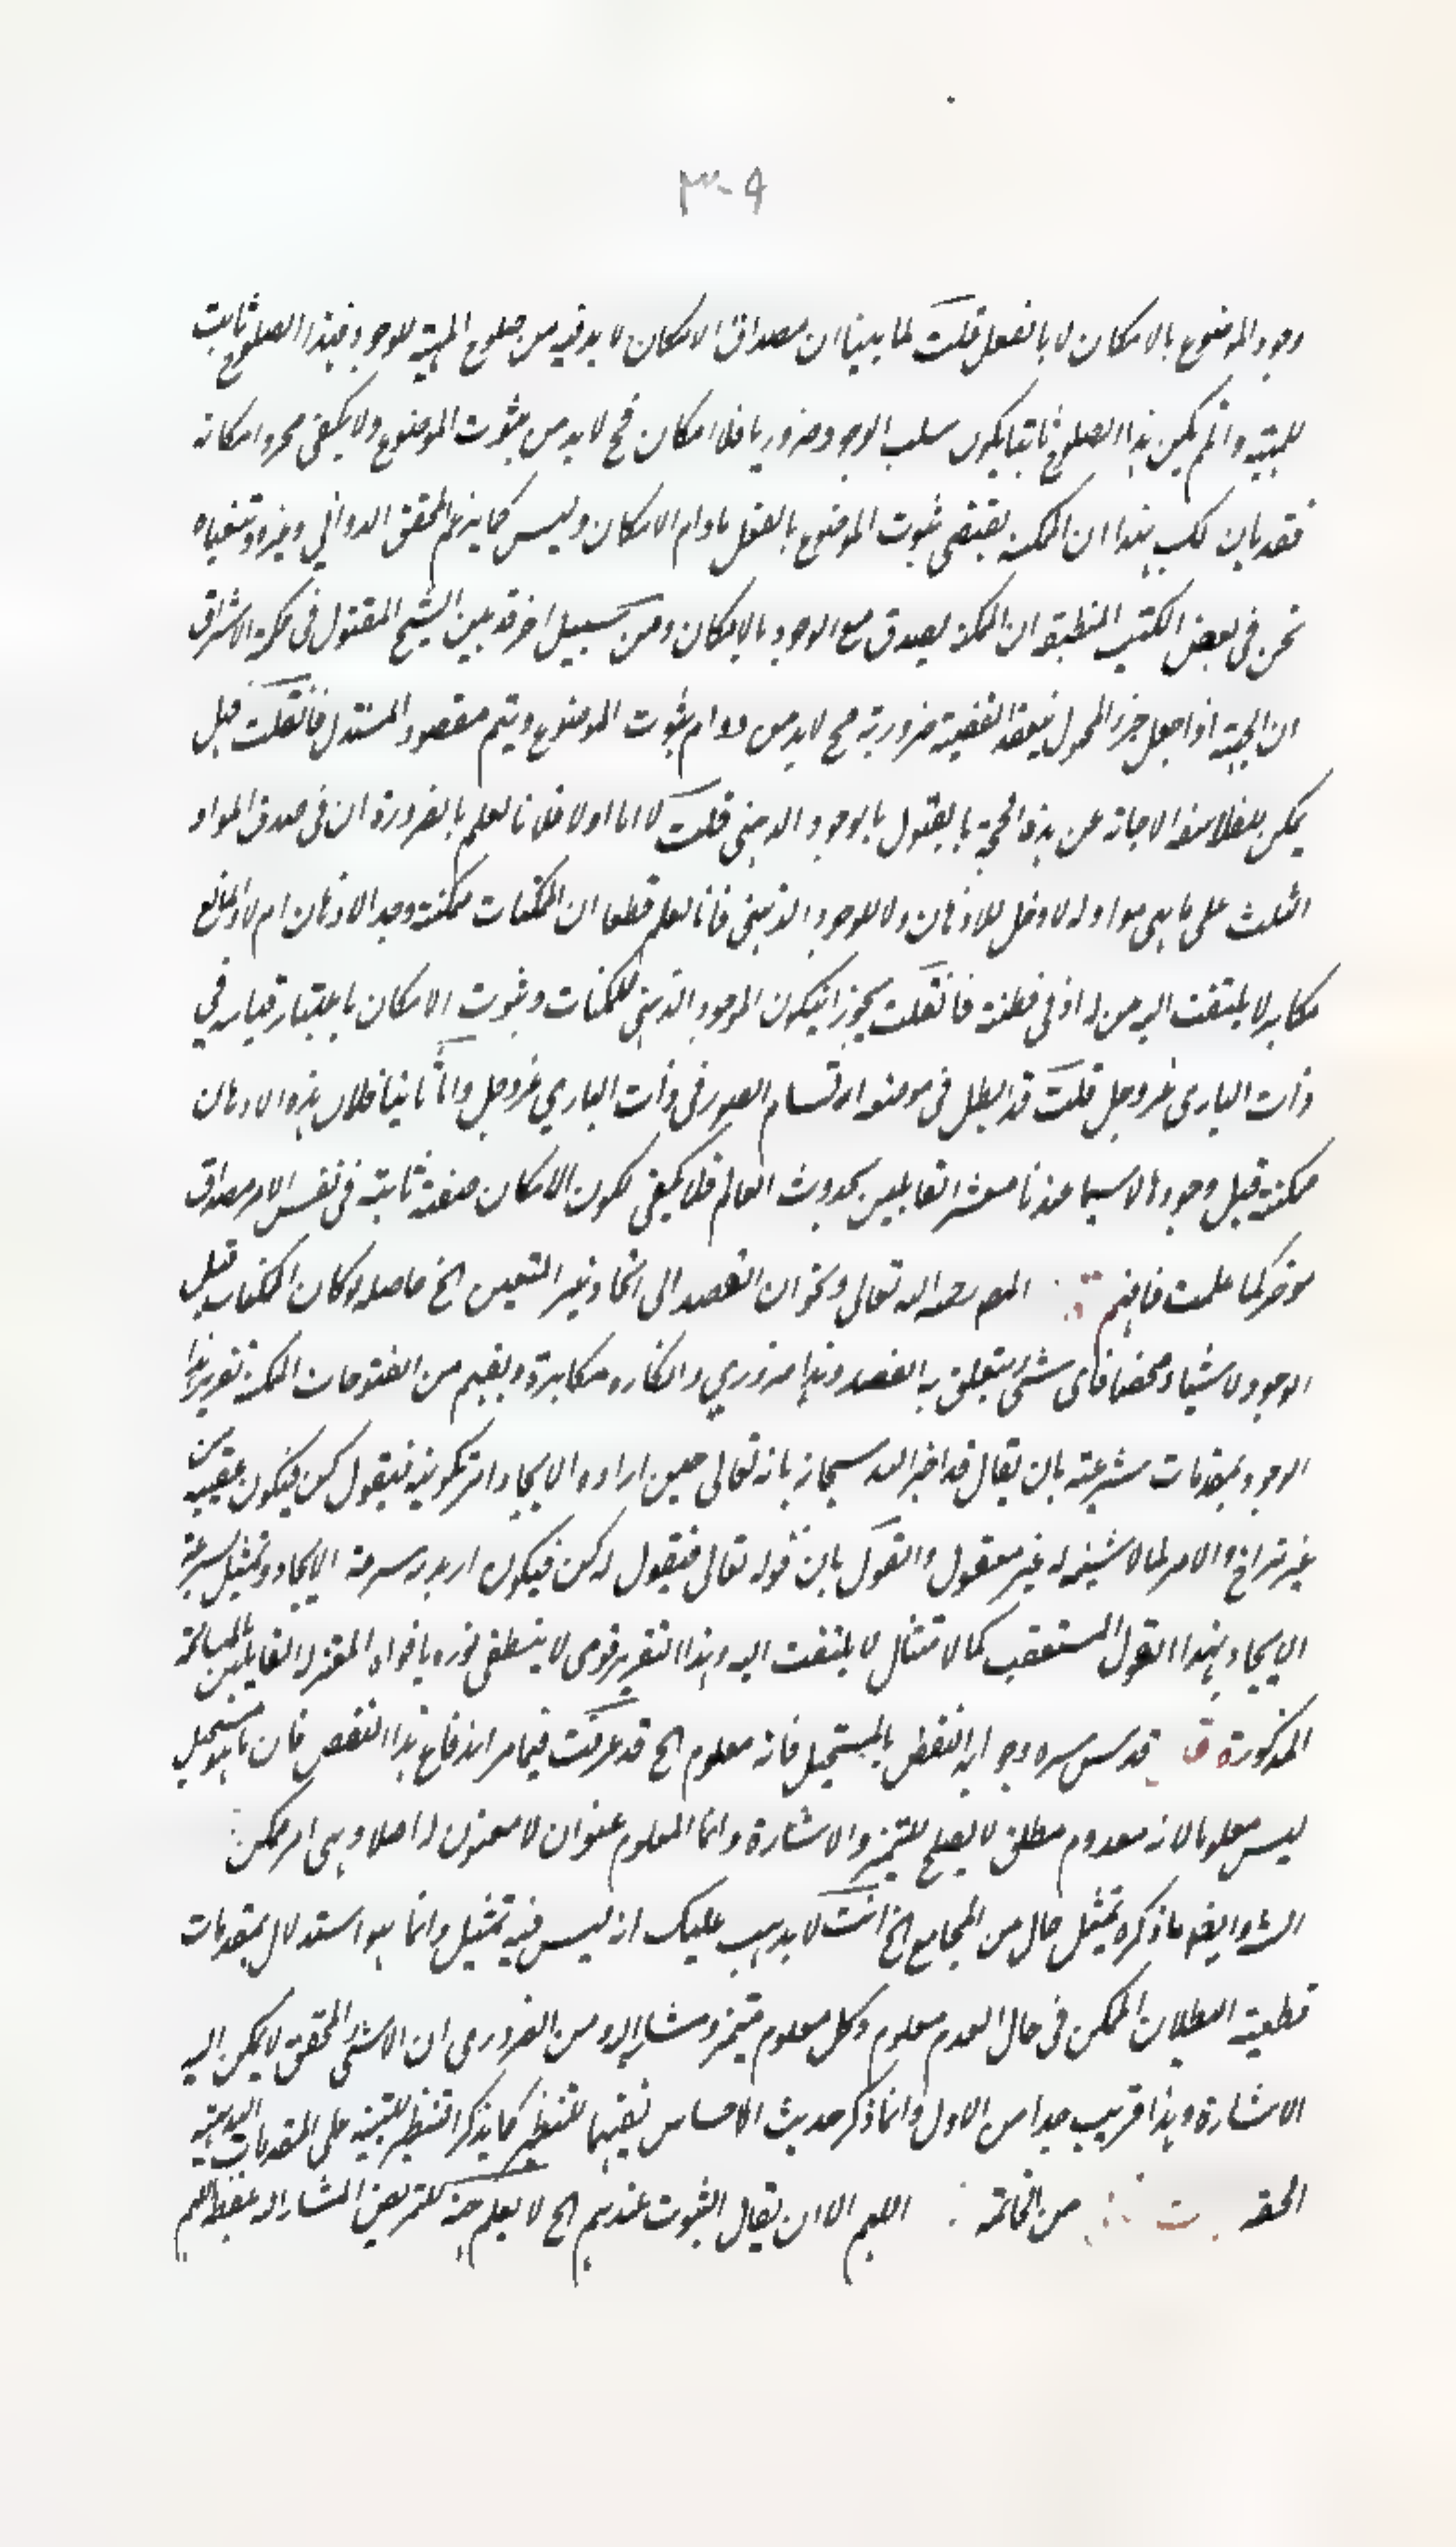 ٣٠٩
وجود الموضوع بالامكان لا بالفعل قلت لما بينا ان مصداق الامكان لا بد فيه من صلوح المهية للوجود فهذا الصلوح ثابت
للمهية وان لم يكن هذا الصلوح ثابتا يكون سلب الوجود ضروريا فلا امكان فح لا بد من ثبوت الموضوع ولا يكفي مجرد امكانه
فقد بان لك بهذا ان الممكنة يقتضى ثبوت الموضوع بالفعل مادام الامكان وليس كما يزعم المحقق الدواني وغيره وتبعناه
نحن في بعض الكتب المنطقية ان الممكنة يصدق مع الوجود بالامكان ومن سبيل اخر قد بين الشيخ المقتول في حكمة الاشراق
ان الجهة اذا جعل جزء المحمول ينعقد القضية ضرورية فح لا بد من دوام ثبوت الموضوع ويتم مقصود المستدل فان قلت قيل
يمكن للفلاسفة الاجابة عن هذه الحجة بالقول بالوجود الذهني قلت لا اما اولا فلانا نعلم بالضرورة ان في صدق المواد
الثلث على ما هي مواد له لا دخل للاذهان ولا للوجود الذهني فانا نعلم قطعا ان الممكنات ممكنة وجد الاذهان ام لا والمانع
مكابر لا يلتفت اليه من له ادنى فطنة فان قلت يجوز ان يكون الوجود الذهني للممكنات وثبوت الامكان باعتبار قيامه في
ذات الباري عز وجل قلت قد ابطل في موضعه ارتسام الصور في ذات الباري عز وجل واما ثانيا فلان هذه الاذهان
ممكنة قبل وجودها لا سيما عندنا معشر القايلين بحدوث العالم فلا يكفي لكون الامكان صفة ثابتة في نفس الامر مصداق
موخر كما علمت فافهم المص رحمه الله تعالى ونحو ان القصد الى ايجاد غير المتعين الخ حاصله لو كان الممكنات قبل
الوجود لا شيئا محضا فاى شئ يتعلق به القصد وهذا ضروري وانكاره مكابرة ويفهم من الفتوحات المكية تقرير هذا
الوجه بمقدمات شرعية بان يقال قد اخبر الله سبحانه بانه تعالى حين اراده الايجاد امر تكوينه فيقول كن فيكون عقيبه من
غير تراخ والامر لما لا شيئية له غير معقول والقول بان قوله تعالى فيقول له كن فيكون اريد به سرعة الايجاد وتمثيل سرعة
الايجاد بهذا القول المستعقب كالامتثال لا يلتفت اليه وهذا التقرير قوي لا ينطفى نوره بافواه المعتزلة القايلين بالمقالة
المذكورة ق قدس سره وجوابه النقض بالمستحيل فانه معلوم الخ قد عرفت فيما مر اندفاع هذا النقض فان ما هو مستحيل
ليس معلوما لانه معدوم مطلق لا يصلح للتميز والاشارة وانما المعلوم عنوان لا معنون له اصلا وهي امر ممكن
الش وايضا ما ذكره تمثيل خال من الجامع الخ انت لا يذهب عليك انه ليس فيه تمثيل وانما هو استدلال بمقدمات
قطعية البطلان الممكن في حال العدم معلوم وكل معلوم متميز ومشار اليه ومن الضروري ان الاشئ المحقق لا يمكن اليه
الاشارة وهذا قريب جدا من الاول وانما ذكر حديث الاحساس تفهيما للتنظير كما يذكر التنظير للتنبيه على المقدمات البديهية
الحقه من الخاتمة اللهم الا ان يقال الثبوت عندهم الخ لا يعلم جهة للتمريض المشار اليه بلفظ اللهم